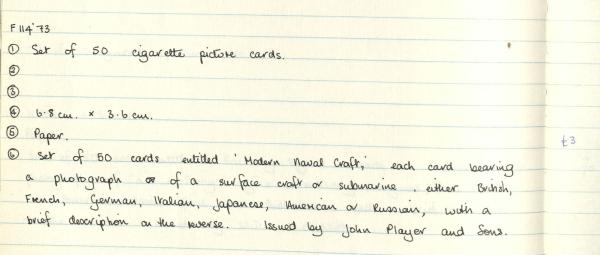 F114'73
① Set of 50 cigarette picture cards.
②
③
④ 6.8 cm. x 3.6 cm.
⑤ Paper.
£3
⑥ Set of 50 cards entitled 'Modern Naval Craft,' each card bearing
a photograph of a surface craft or submarine, either British,
French, German, Italian, Japanese, American or Russian, with a
brief description on the reverse. Issued by John Player and Sons.